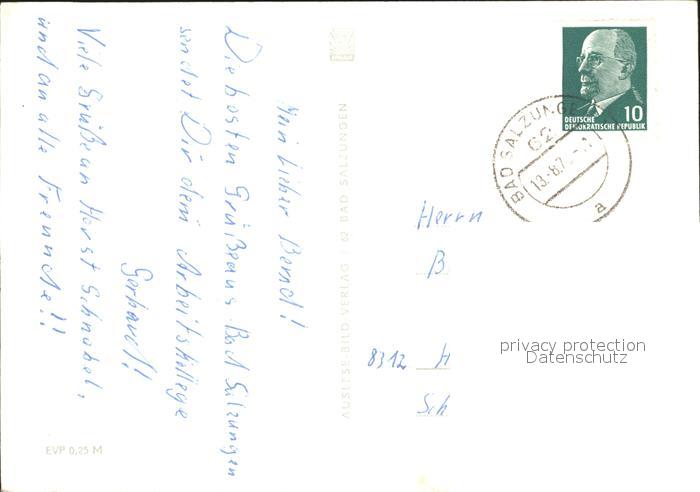 Mein lieber Bernd!
Die besten Grüße aus Bad Salzungen
sendet Dir dein Arbeitskollege
Gerhard!!
Viele Grüße an Horst Schnabel,
und an alle Freunde!!
EVP 0,25 M
AUSLESE-BILD-VERLAG / 62 BAD SALZUNGEN
10
DEUTSCHE
DEMOKRATISCHE REPUBLIK
BAD SALZUNGEN
62
a
Herrn
B
8312 H
Sch
privacy protection
Datenschutz